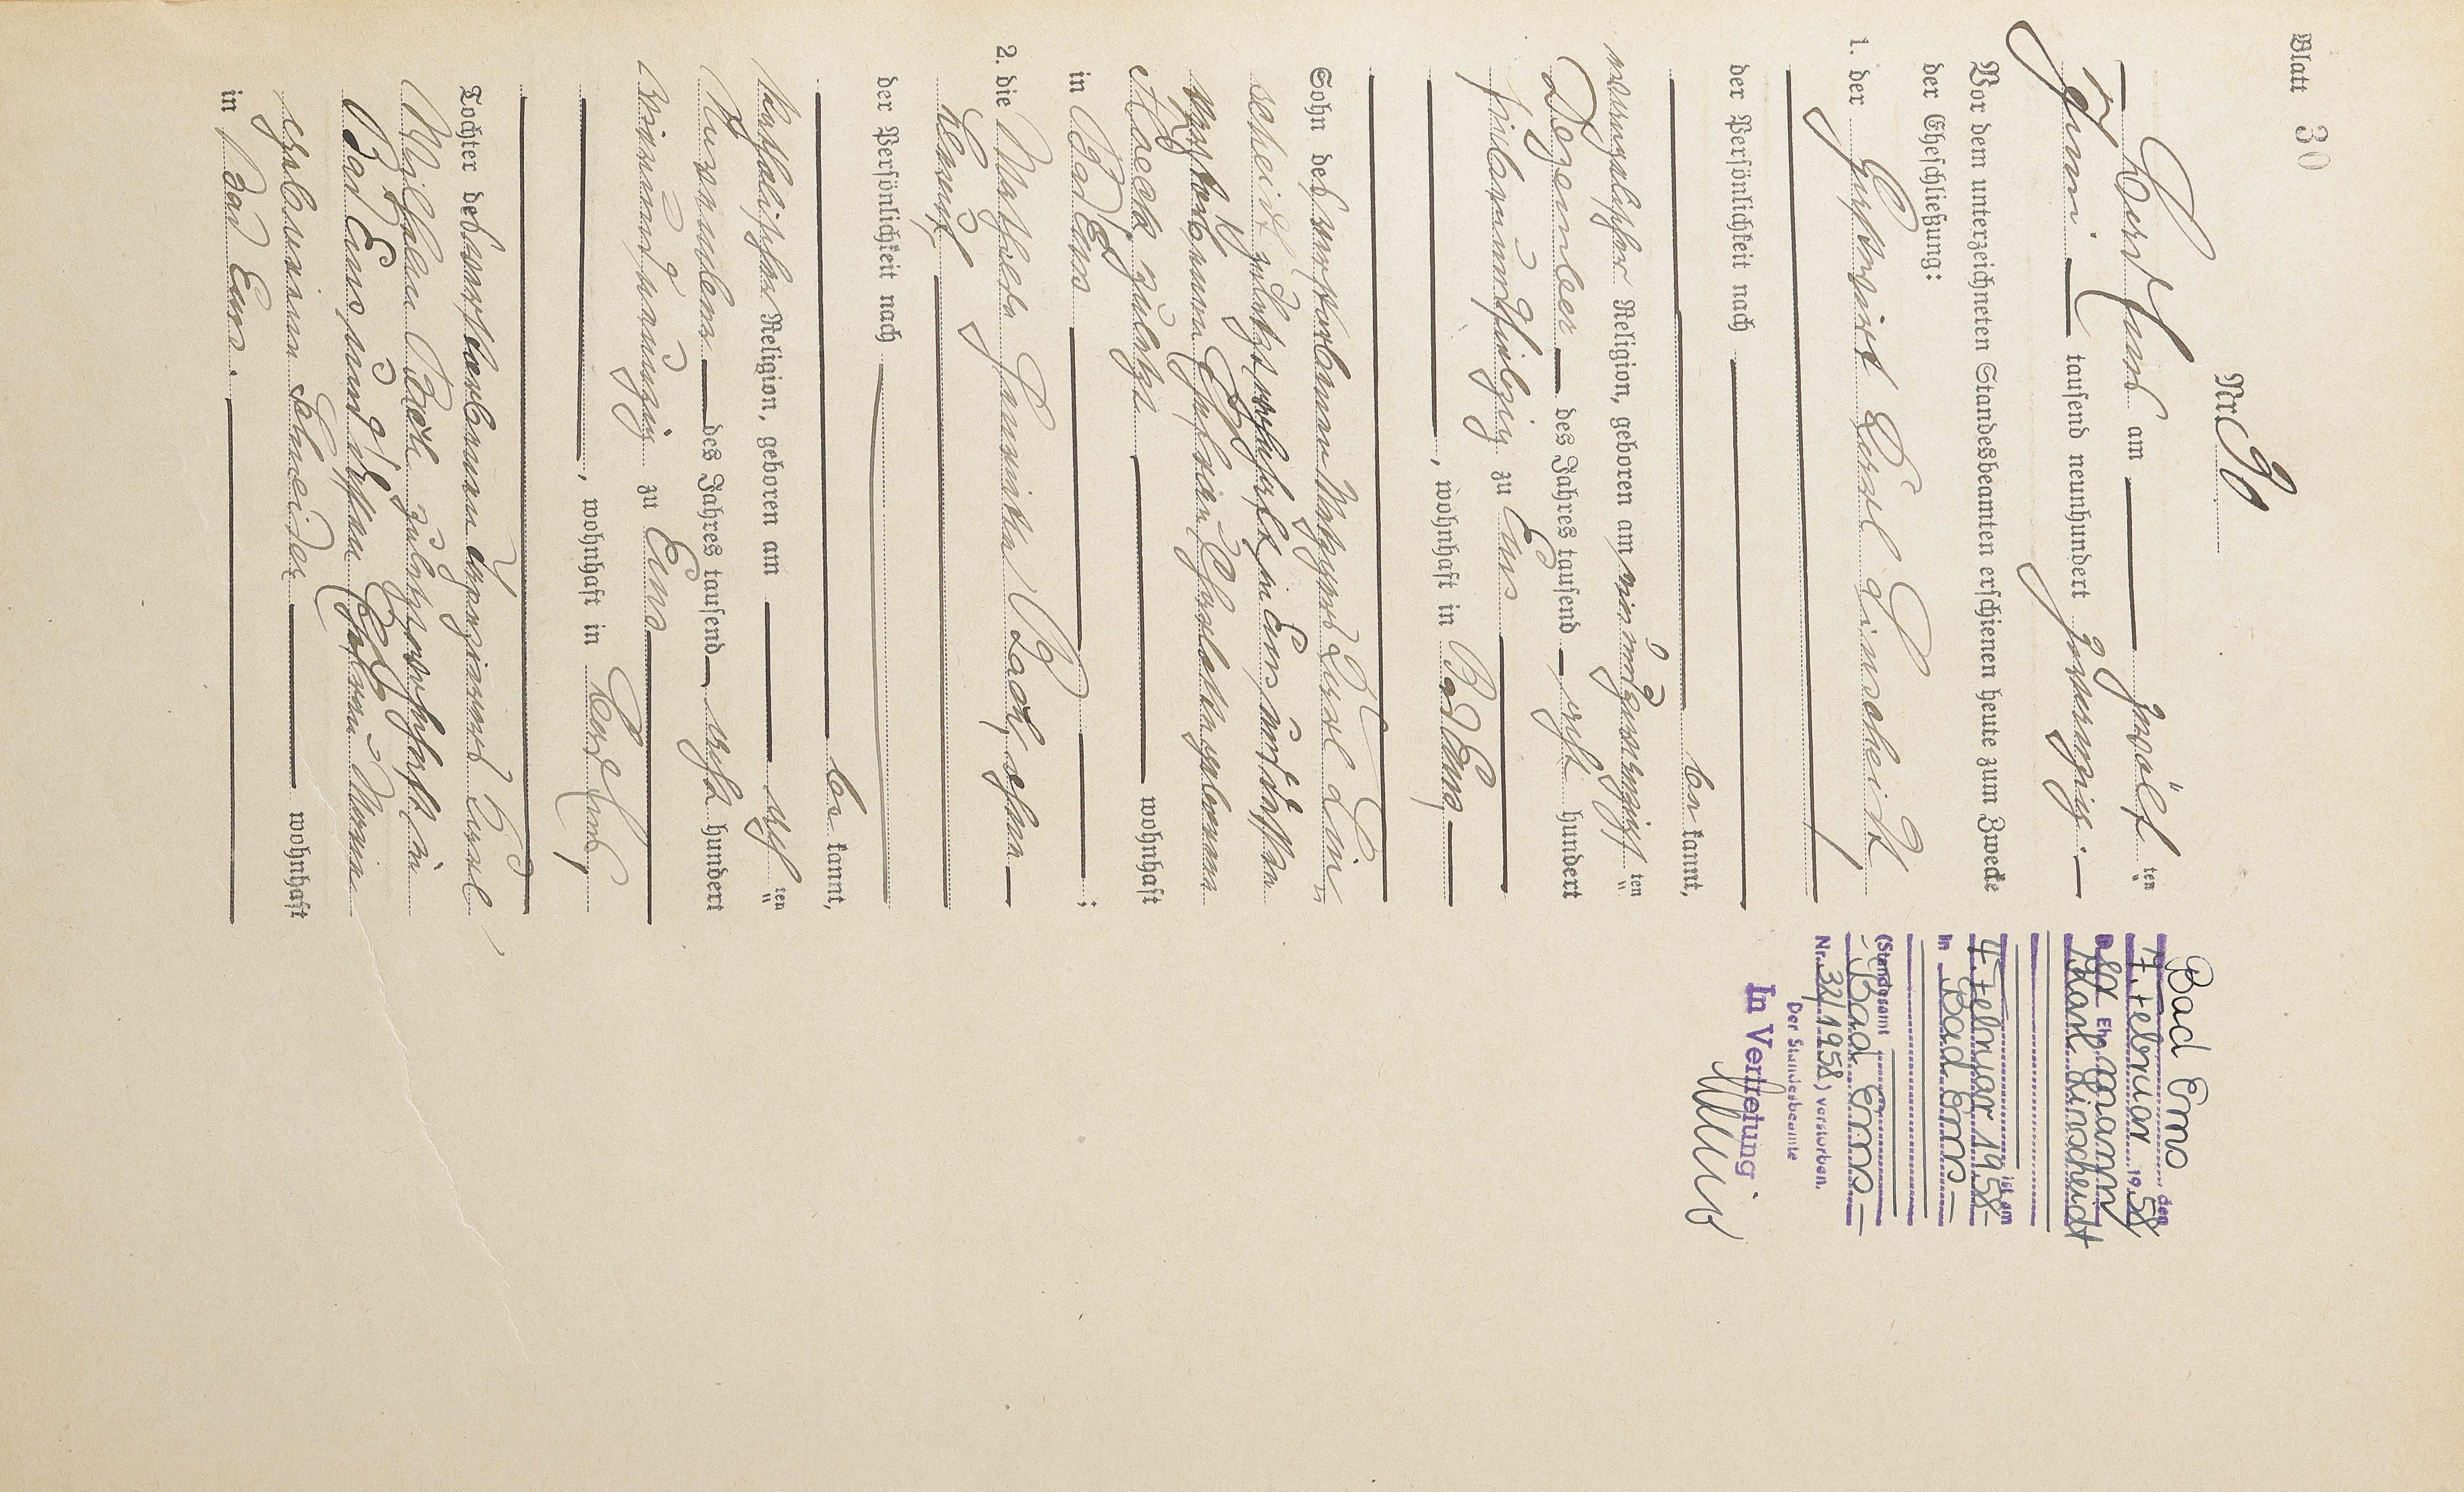 Blatt 30
Nr. 30
Bad Ems am zwölften
Juni tausend neunhundert zwanzig.
Vor dem unterzeichneten Standesbeamten erschienen heute zum Zwecke
der Eheschließung:
1. der Gastwirt Karl Linscheidt
der Persönlichkeit nach
be kannt,
evangelischer Religion, geboren am einundzwanzigsten
Dezember des Jahres tausend acht hundert
siebenundsiebzig zu Ems
, wohnhaft in Bad Ems,
Sohn des verstorbenen Metzgers Karl Lin
scheidt, zuletzt wohnhaft in Ems, und dessen
verstorbenen Ehefrau Charlotte geborenen
Flöck, zuletzt wohnhaft
in Bad Ems ;
2. die Mathilde Henriette Bach, ohne
Beruf,
der Persönlichkeit nach
be kannt,
katholischer Religion, geboren am achten
November des Jahres tausend acht hundert
neunundneunzig zu Ems
, wohnhaft in Bad Ems,
Tochter des verstorbenen Karl
Wilhelm Bach zuletzt wohnhaft in
Bad Ems und dessen Ehefrau Maria
geborenen Schneider wohnhaft
in Bad Ems.
Bad Ems, den
17. Februar 1958
Der Ehemann
Karl Linscheidt
ist am
4. Februar 1958
in Bad Ems
(Standesamt
Bad Ems
Nr. 32/1958) verstorben.
Der Standesbeamte
In Vertretung